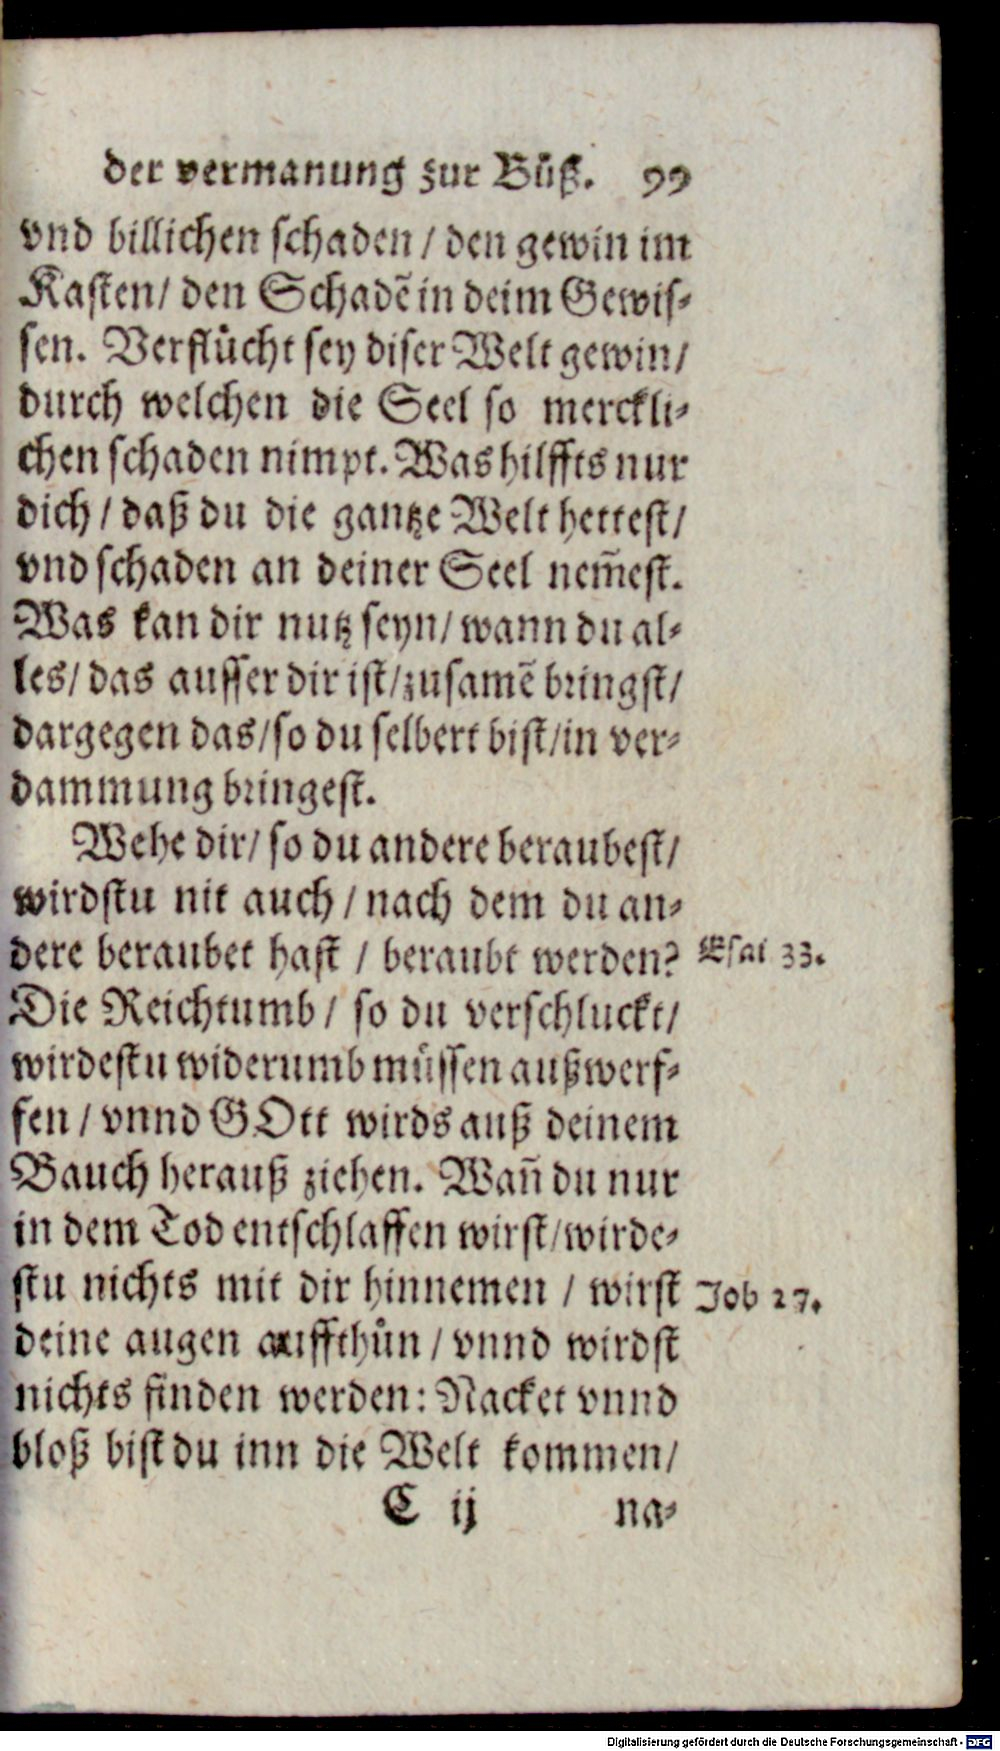 der vermanung zur Bůß. 99
vnd billichen schaden / den gewin im
Kasten / den Schadẽ in deim Gewis-
sen. Verflůcht sey diser Welt gewin /
durch welchen die Seel so merckli-
chen schaden nimpt. Was hilffts nur
dich / daß du die gantze Welt hettest /
vnd schaden an deiner Seel nem̃est.
Was kan dir nutz seyn / wann du al-
les / das ausser dir ist / zusamẽ bringst /
dargegen das / so du selbert bist / in ver-
dammung bringest.
Wehe dir / so du andere beraubest /
wirdstu nit auch / nach dem du an-
dere beraubet hast / beraubt werden? Esai 33.
Die Reichtumb / so du verschluckt /
wirdestu widerumb müssen außwerf-
fen / vnnd GOtt wirds auß deinem
Bauch herauß ziehen. Wañ du nur
in dem Tod entschlaffen wirst / wirde-
stu nichts mit dir hinnemen / wirst Job 27.
deine augen auffthůn / vnnd wirdst
nichts finden werden: Nacket vnnd
bloß bist du inn die Welt kommen /
C ij na-
Digitalisierung gefördert durch die Deutsche Forschungsgemeinschaft - DFG